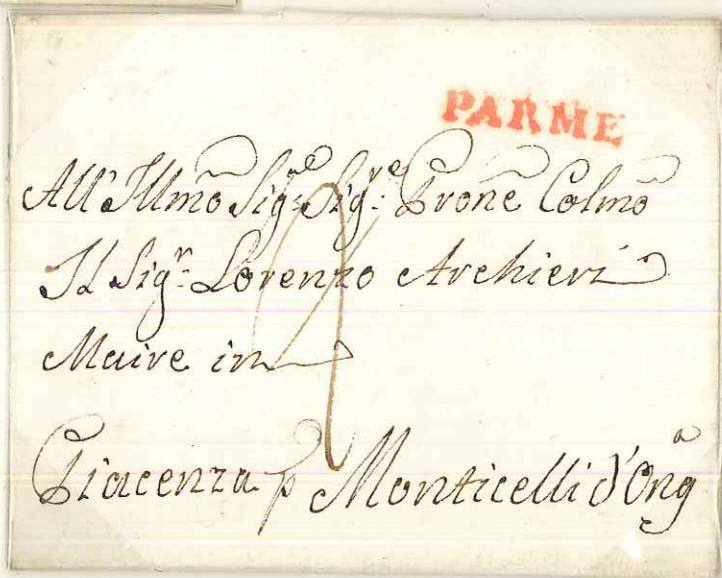 PARME
All' Illmo Sigre Sigre: Prone Colmo
Il Sigr: Lorenzo Archieri
Maire in
Piacenza p Monticelli d'Onga